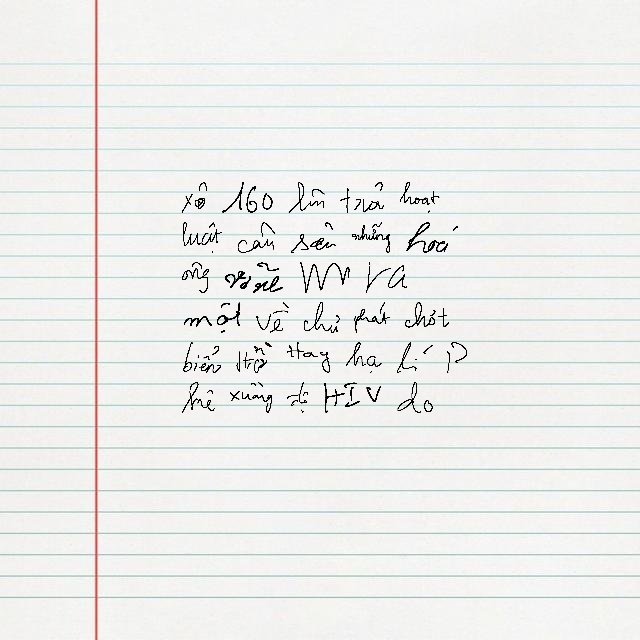 xô 160 lần trở hoạt
luật cần sản những hoá
ông
một về chủ phát chót
biển hay hạ lí P
hệ xuồng dị HIV do